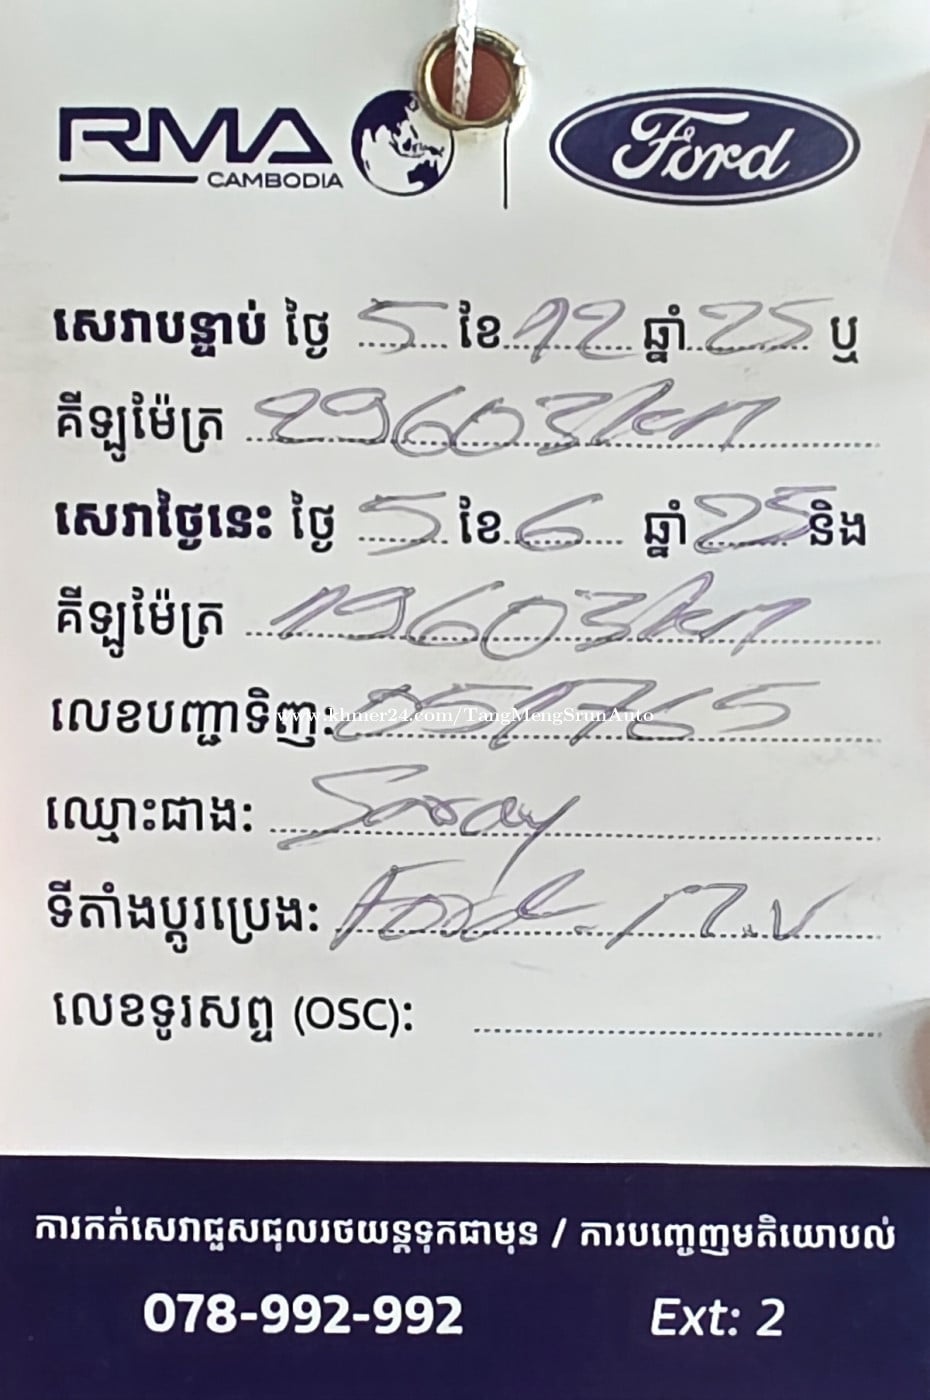 RMA CAMBODIA Ford
សេវាបន្ទាប់ ថ្ងៃ 5 ខែ 12 ឆ្នាំ 25 ឬ
គីឡូម៉ែត្រ 29603km
សេវាថ្ងៃនេះ ថ្ងៃ 5 ខែ 6 ឆ្នាំ 25 និង
គីឡូម៉ែត្រ 19603km
លេខបញ្ជាទិញ: 051765
www.khmer24.com/TangMengSrunAuto
ឈ្មោះជាង: Saray
ទីតាំងប្តូរប្រេង: Ford
លេខទូរសព្ទ (OSC):
ការកក់សេវាជួសជុលរថយន្តទុកជាមុន / ការបញ្ចេញមតិយោបល់
078-992-992 Ext: 2